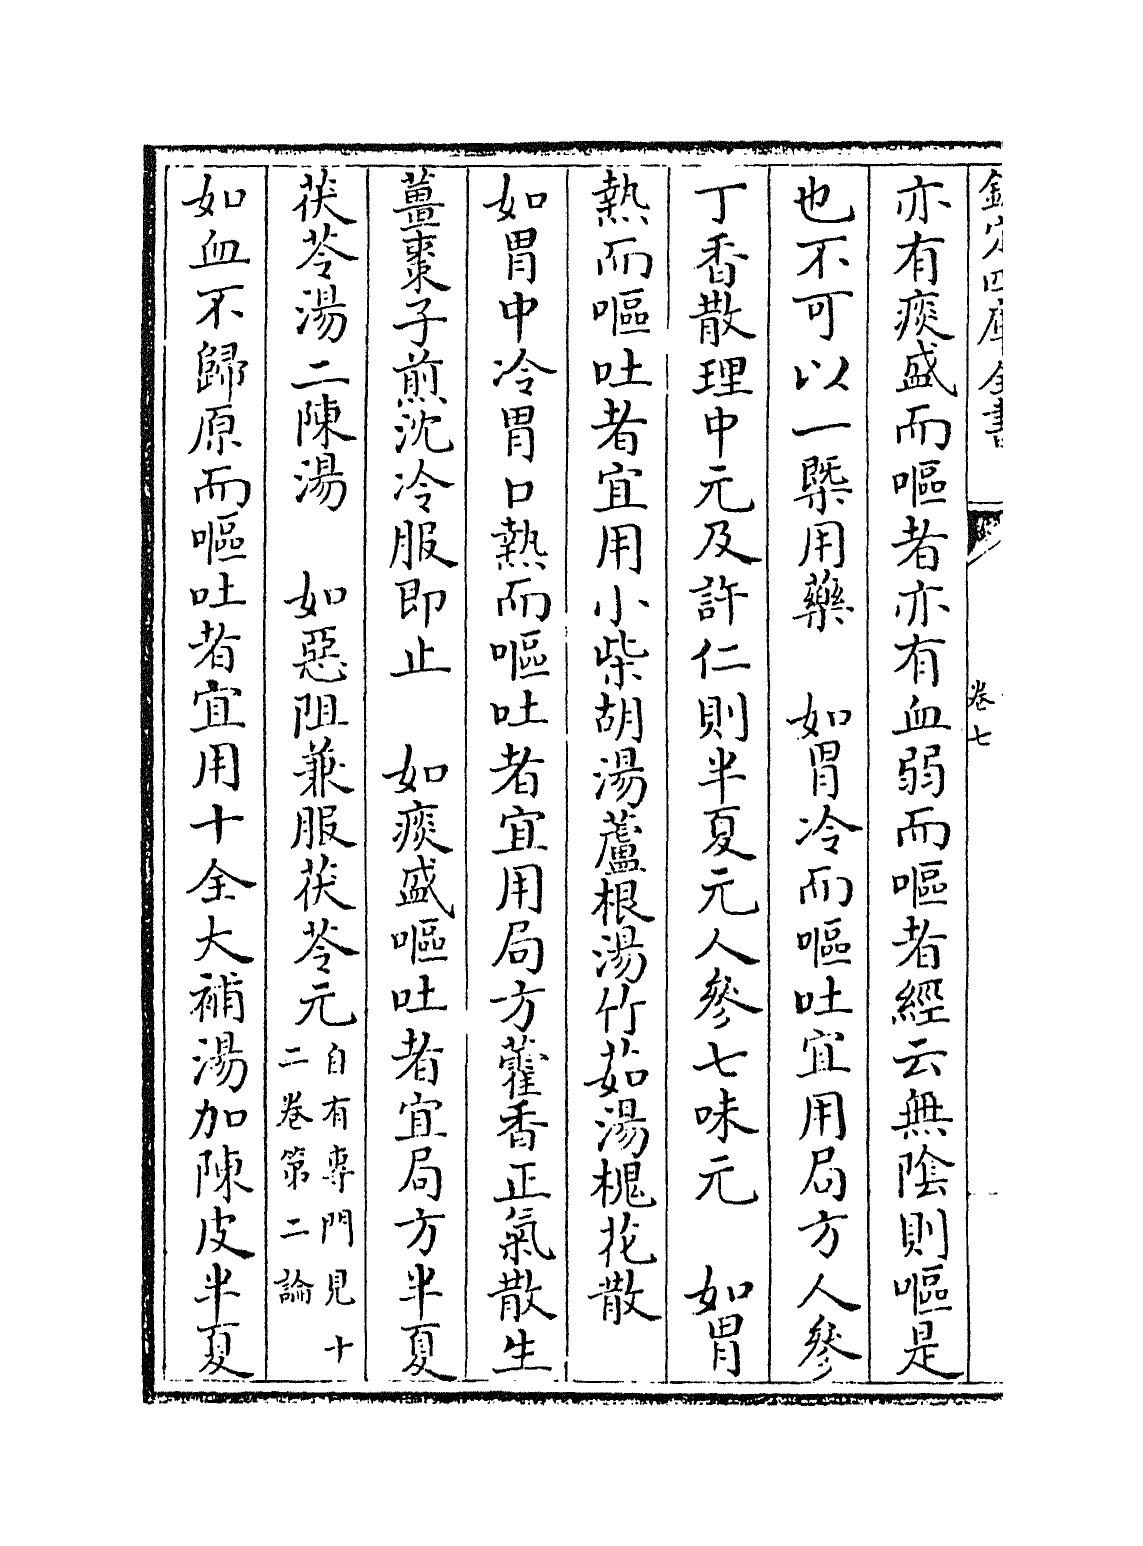 欽定四庫全書
卷七
亦有痰盛而嘔者亦有血弱而嘔者經云無陰則嘔是
也不可以一槩用藥　如胃冷而嘔吐宜用局方人參
丁香散理中元及許仁則半夏元人參七味元　如胃
熱而嘔吐者宜用小柴胡湯蘆根湯竹茹湯槐花散
如胃中冷胃口熱而嘔吐者宜用局方藿香正氣散生
薑棗子煎沈冷服即止　如痰盛嘔吐者宜局方半夏
茯苓湯二陳湯　如惡阻兼服茯苓元自有專門見十
二卷第二論
如血不歸原而嘔吐者宜用十全大補湯加陳皮半夏